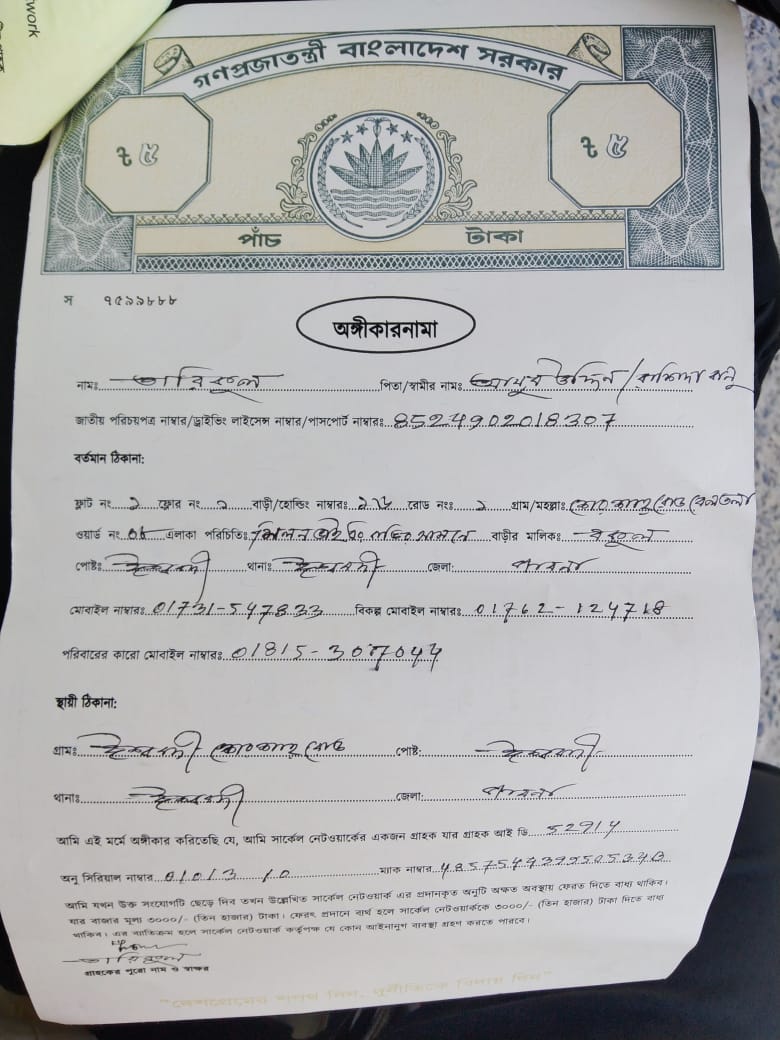 twork
গণপ্রজাতন্ত্রী বাংলাদেশ সরকার
৳ ৫ ৳ ৫
পাঁচ টাকা
স ৭৫৯৯৮৮৮
অঙ্গীকারনামা
নামঃ তারিকুল পিতা/স্বামীর নামঃ আয়ুব উদ্দিন/রাশিদা বানু
জাতীয় পরিচয়পত্র নাম্বার/ড্রাইভিং লাইসেন্স নাম্বার/পাসপোর্ট নাম্বারঃ 8524902018307
বর্তমান ঠিকানা:
ফ্লাট নং ফ্লোর নং বাড়ী/হোল্ডিং নাম্বারঃ রোড নংঃ গ্রাম/মহল্লাঃ রোড বেলতলা
ওয়ার্ড নং 06 এলাকা পরিচিতিঃ সামনে বাড়ীর মালিকঃ
পোষ্টঃ ঈশ্বরদী থানাঃ ঈশ্বরদী জেলা: পাবনা
মোবাইল নাম্বারঃ 01731-547833 বিকল্প মোবাইল নাম্বারঃ 01762-124718
পরিবারের কারো মোবাইল নাম্বারঃ 01815-307044
স্থায়ী ঠিকানা:
গ্রামঃ ঈশ্বরদী রোড পোষ্ট: ঈশ্বরদী
থানাঃ ঈশ্বরদী জেলা: পাবনা
আমি এই মর্মে অঙ্গীকার করিতেছি যে, আমি সার্কেল নেটওয়ার্কের একজন গ্রাহক যার গ্রাহক আই ডি 52914
অনু সিরিয়াল নাম্বার ম্যাক নাম্বার
আমি যখন উক্ত সংযোগটি ছেড়ে দিব তখন উল্লেখিত সার্কেল নেটওয়ার্ক এর প্রদানকৃত অনুটি অক্ষত অবস্থায় ফেরত দিতে বাধ্য থাকিব।
যার বাজার মূল্য ৩০০০/- (তিন হাজার) টাকা। ফেরৎ প্রদানে ব্যর্থ হলে সার্কেল নেটওয়ার্ককে ৩০০০/- (তিন হাজার) টাকা দিতে বাধ্য
থাকিব। এর ব্যতিক্রম হলে সার্কেল নেটওয়ার্ক কর্তৃপক্ষ যে কোন আইনানুগ ব্যবস্থা গ্রহণ করতে পারবে।
তারিকুল
গ্রাহকের পুরো নাম ও স্বাক্ষর